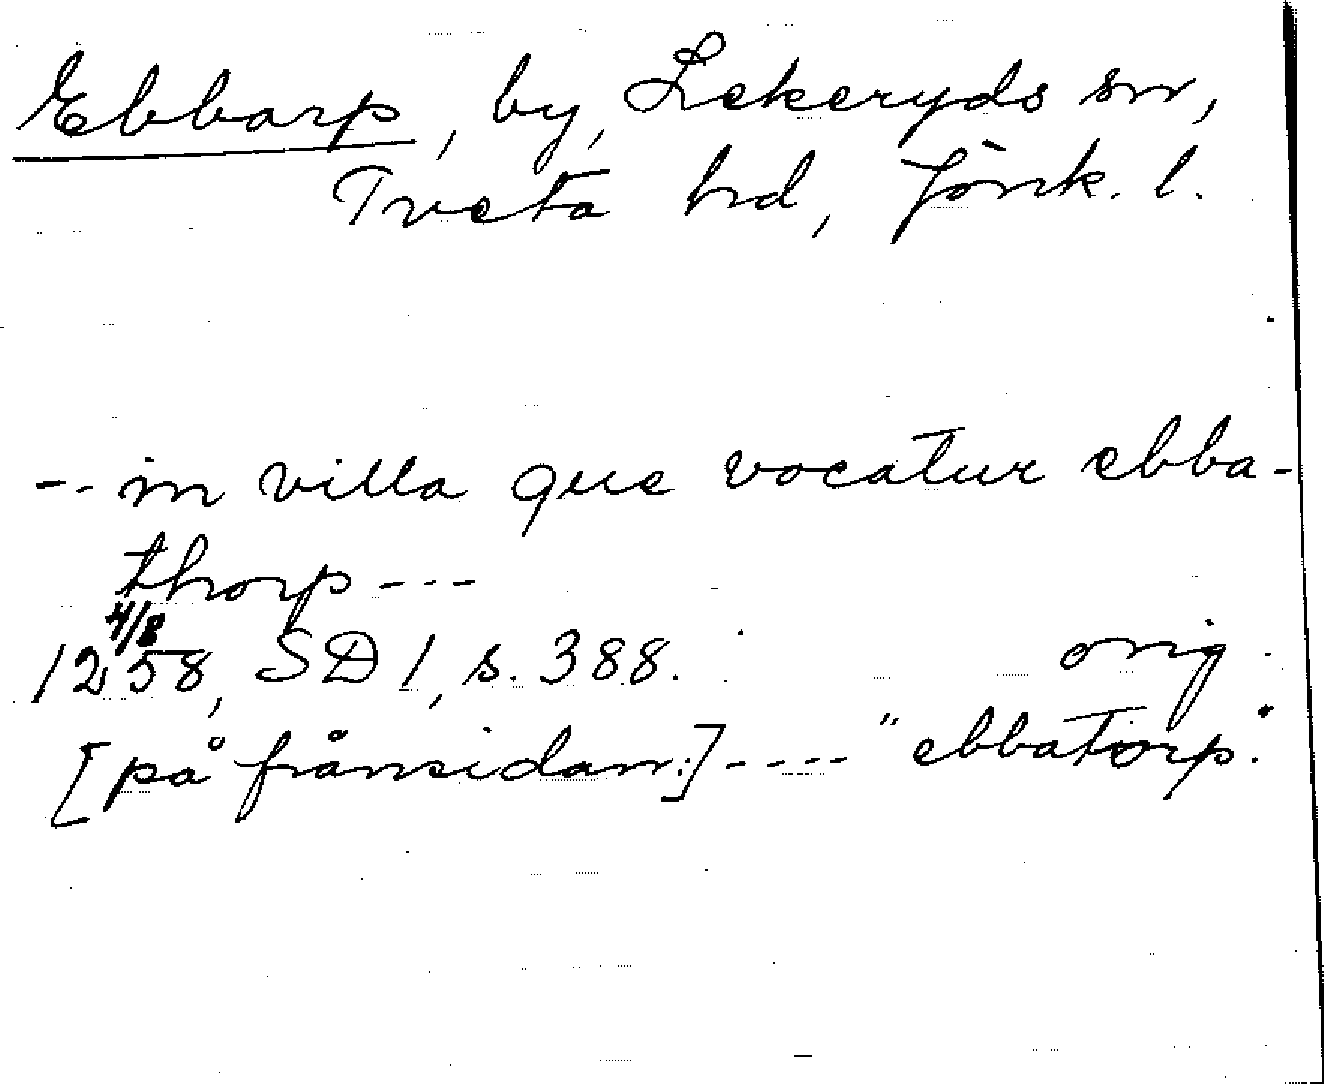 Ebbarp, by, Lekeryds sn,
Tveta hd, Jönk. l.
-- in villa que vocatur ebba-
thorp ---
4/8
1258, SD 1, s. 388. orig.
[på frånsidan:] ---- "ebbatorp."